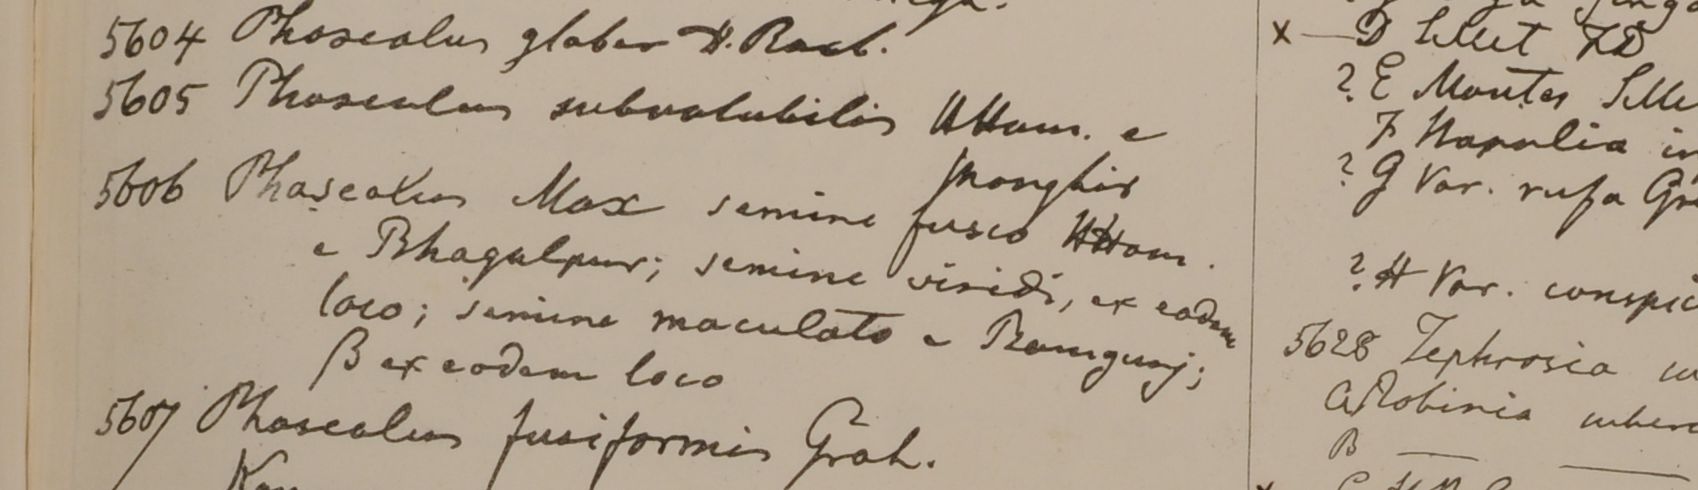 5604 Phaseolus glaber H. Roxb.
5605 Phaseolus subvolubilis HHam. e
Monghir
5606 Phaseolus Max semine fusco HHam.
e Bhagalpur; semine viridi, ex eodem
loco; semine maculato e Ramgunj;
β ex eodem loco
5607 Phaseolus fusiformis Grah.
x — D
? E Montes Sille
F Napalia in
? G Var. rufa Gr
? H Var. conspic
5628 Tephrosia
a Robinia
B —